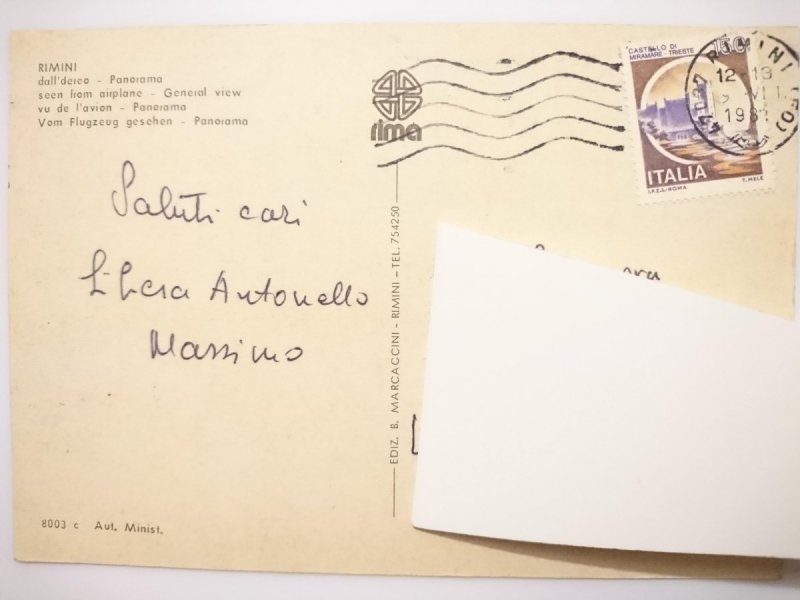 RIMINI
dall'aereo - Panorama
seen from airplane - General view
vu de l'avion - Panorama
Vom Flugzeug gesehen - Panorama
rima
CASTELLO DI
MIRAMARE - TRIESTE
150
ITALIA
I.P.Z.S.-ROMA T. MELE
47037 RIMINI (FO)
12-13
Saluti cari
Libera Antonello
Massimo
EDIZ. B. MARCACCINI - RIMINI - TEL. 754250
8003 c Aut. Minist.